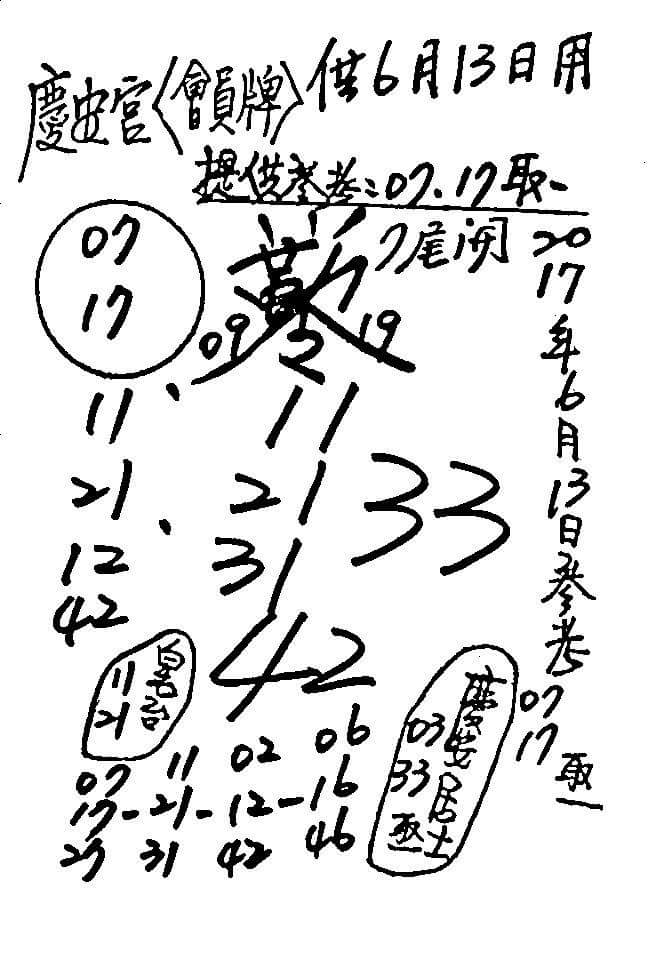 慶安宮〈會員牌〉供6月13日用
提供參考:07.17取一
7尾開
2017年6月13日參考
07
17
取一
07
17
09
19
11、
21、
12
42
11
21
31
33
42
11
21
慶安居士
03
33
取一
07 11 02 06
17-21-12-16
27 31 42 46